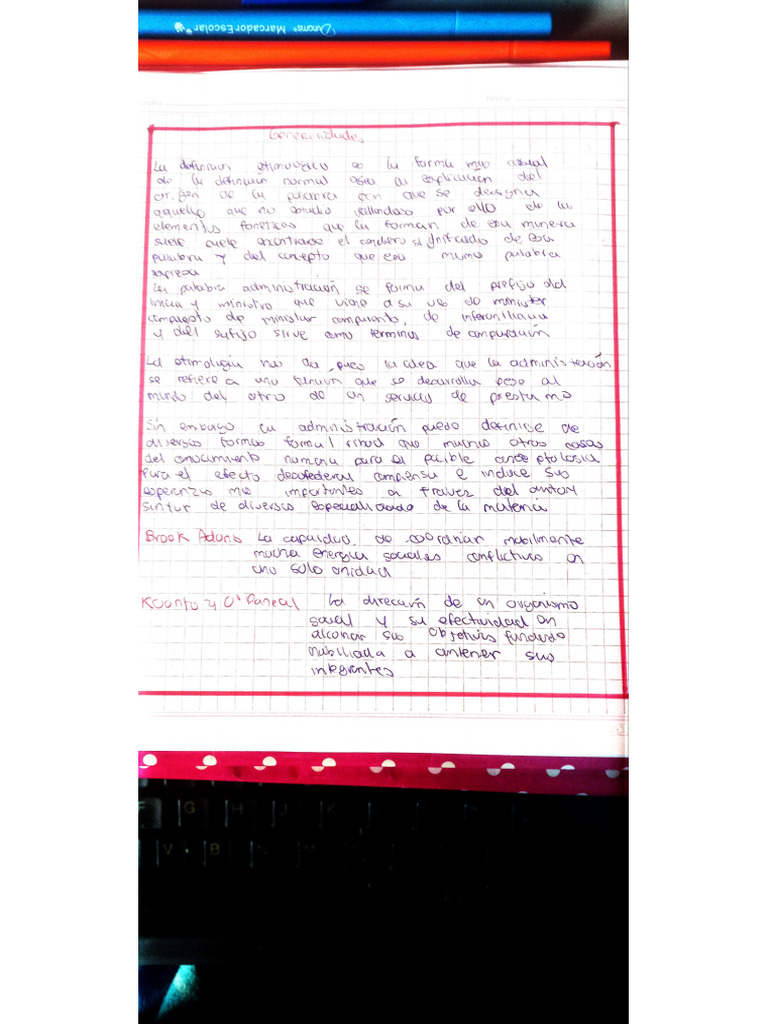 Dinams® Marcador Escolar
Generalidades
La definicion etimologica es la forma mas usual
de la definicion normal esta la explicacion del
origen de la palabra con que se designa
aquello que no estudio valiendose por ello de los
elementos foneticos que la forman de esa manera
suele suele encontrarse el significado de esa
palabra y del concepto que esa misma palabra
expresa
La palabra administración se forma del prefijo ad
y ministro que viene a su vez de minister
compuesto de minister comparativo, de inferioridad
y del sufijo sirve como terminos de comparación
La etimologia nos da pues la idea que la administración
se refiere a una funcion que se desarrolla bajo al
mundo del otro de un servicio de prestamo
Sin embargo la administración puede definirse de
diversas formas formal que muchas otras cosas
del conocimiento humana para el
Para el efecto e induce sus
mas importantes a traves del
de diversos especializado de la materia
Brook Adans La capacidad de coordinar habilmente
mucha energia sociales conflictivo en
una solo unidad
Koontz y O'Daneal La dirección de un organismo
social y su efectividad en
alconar sus objetivos fundado
a antener sus
integrantes
F G H J K
V B N M